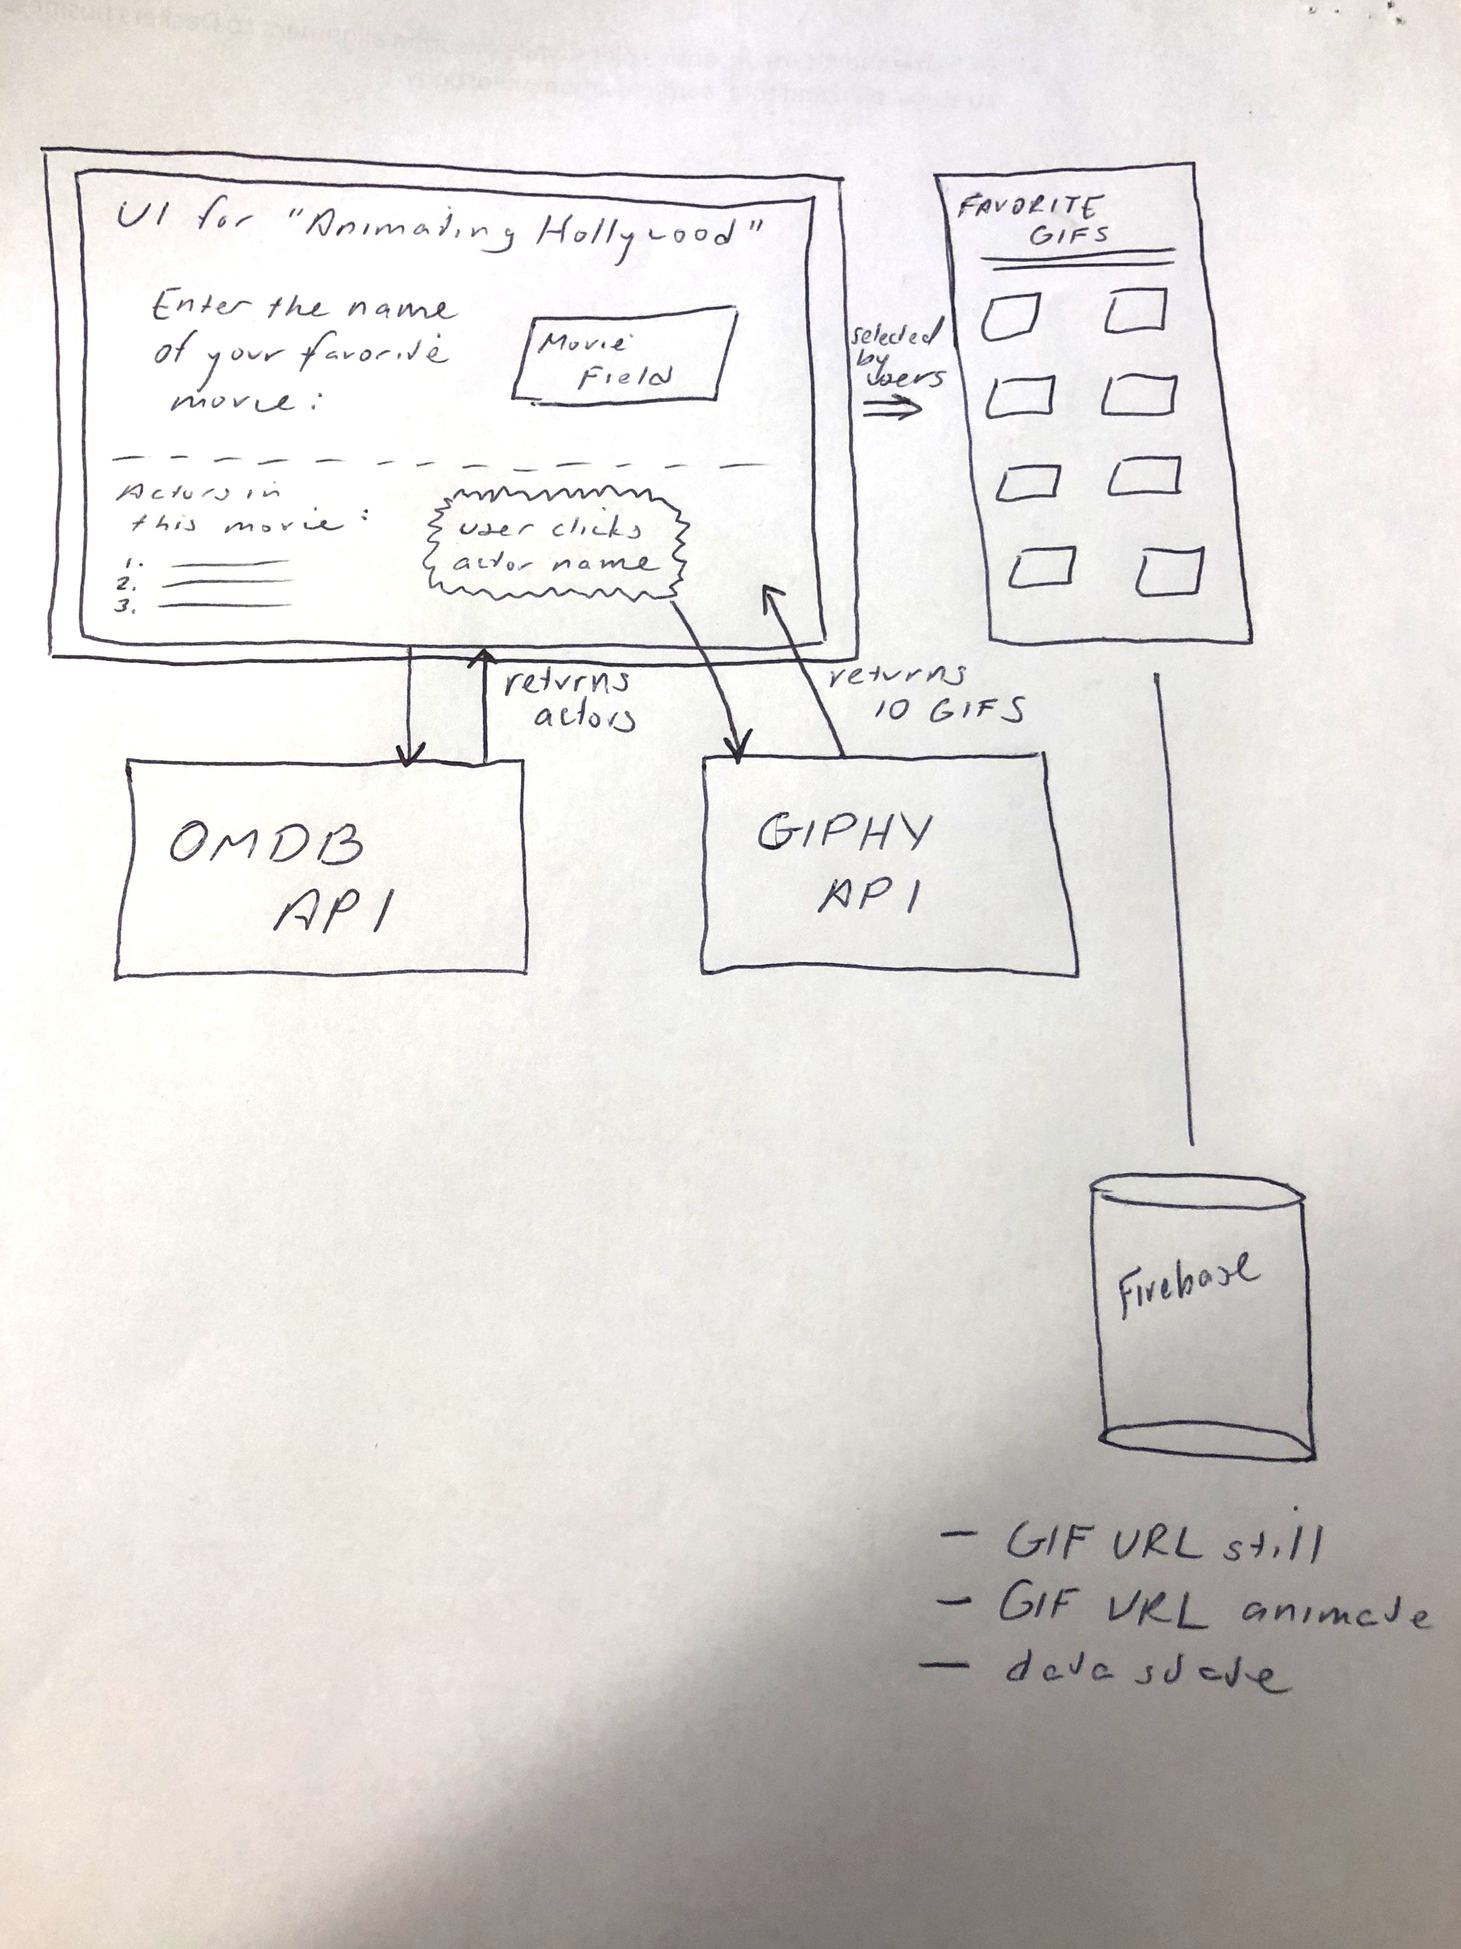 UI for "Animating Hollywood"
Enter the name
of your favorite
movie:
Movie
Field
Actors in
this movie:
1.
2.
3.
user clicks
actor name
selected
by
users
FAVORITE
GIFS
returns
actors
returns
10 GIFS
OMDB
API
GIPHY
API
Firebase
- GIF URL still
- GIF URL animate
- data state